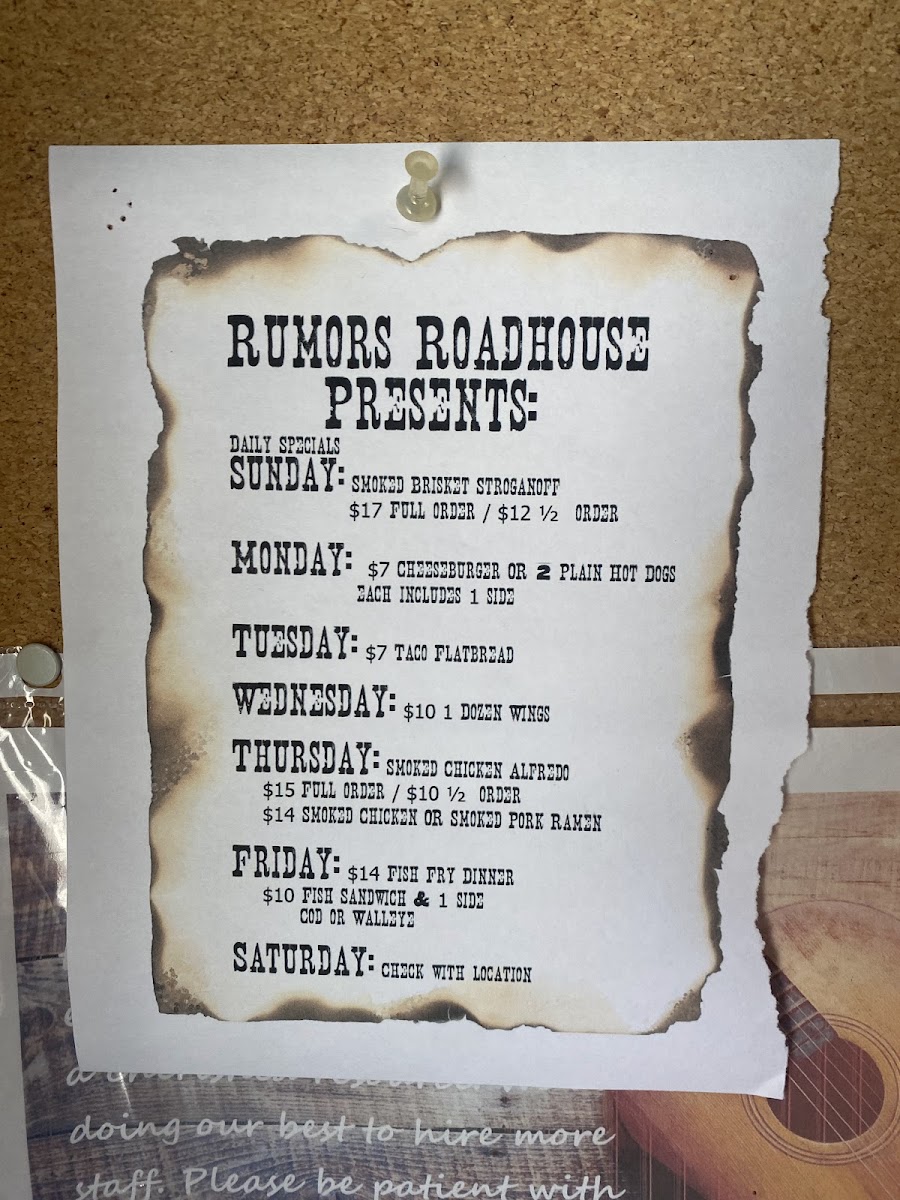 RUMORS ROADHOUSE
PRESENTS:
DAILY SPECIALS
SUNDAY: SMOKED BRISKET STROGANOFF
$17 FULL ORDER / $12 ½ ORDER
MONDAY: $7 CHEESEBURGER OR 2 PLAIN HOT DOGS
EACH INCLUDES 1 SIDE
TUESDAY: $7 TACO FLATBREAD
WEDNESDAY: $10 1 DOZEN WINGS
THURSDAY: SMOKED CHICKEN ALFREDO
$15 FULL ORDER / $10 ½ ORDER
$14 SMOKED CHICKEN OR SMOKED PORK RAMEN
FRIDAY: $14 FISH FRY DINNER
$10 FISH SANDWICH & 1 SIDE
COD OR WALLEYE
SATURDAY: CHECK WITH LOCATION
doing our best to hire more
staff. Please be patient with